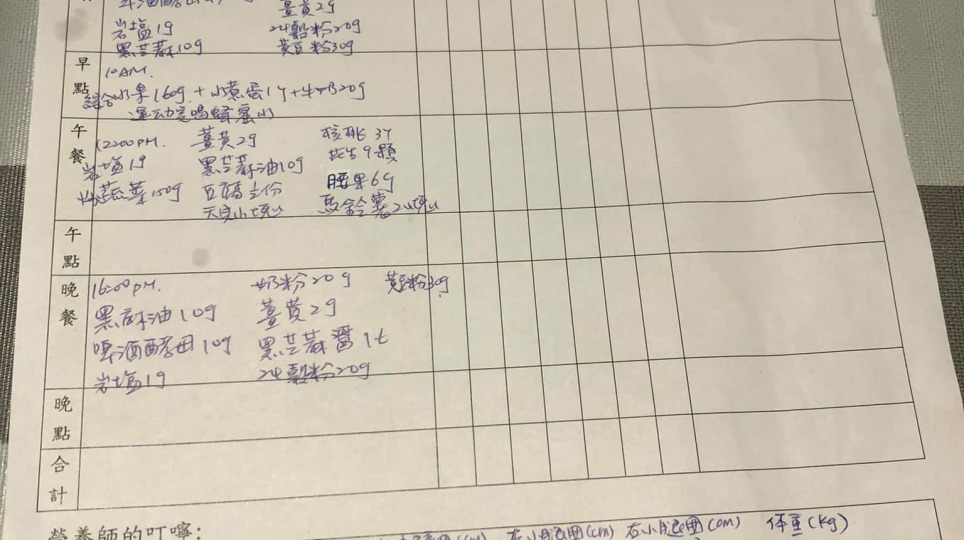 薑黃2g
岩塩1g 24穀粉20g
黑芝蔴10g 黃豆粉30g
早點
10AM.
綜合水果160g + 水煮蛋1y +
運动完喝蜂蜜水
午餐
12:00PM. 薑黃2g 核桃 3y
岩塩1g 黑芝蔴油10g 花生9顆
150g 豆腐 份 腰果6g
小塊 馬鈴薯2小塊
午點
晚餐
16:00PM. 奶粉20g 黃豆粉30g
黑麻油10g 薑黃2g
啤酒酵母10g 黑芝蔴醬1t
岩塩1g 24穀粉20g
晚點
合計
營養師的叮嚀:
左小腿圍(cm) 右小腿圍(cm) 体重(kg)